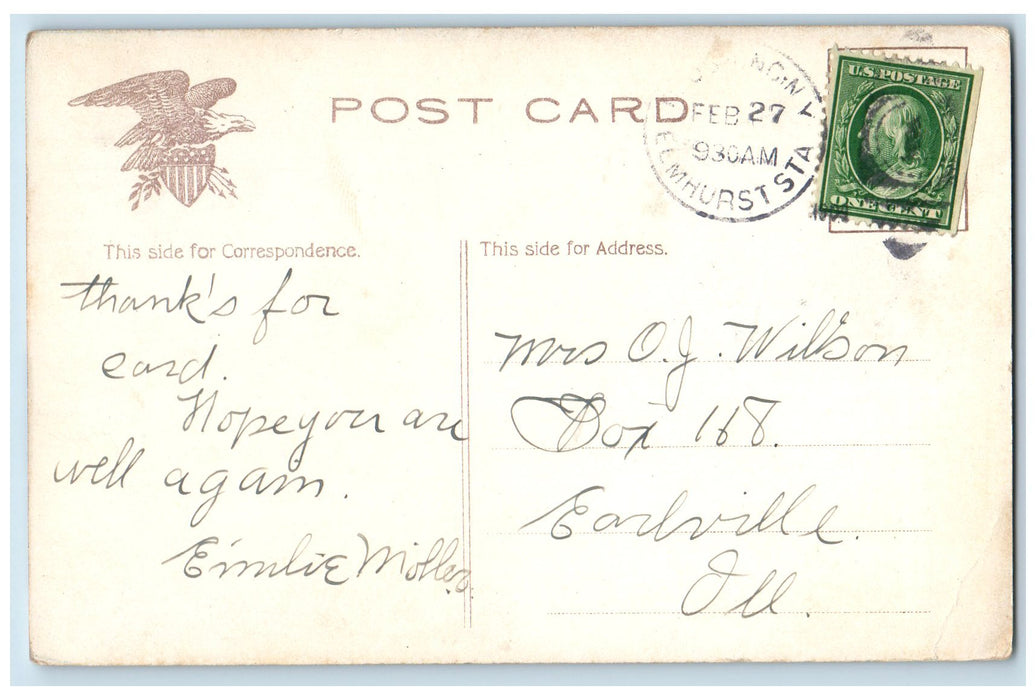 POST CARD
FEB 27
930AM
ELMHURST STA
U.S. POSTAGE
ONE CENT
This side for Correspondence.
This side for Address.
thank's for
card.
Hope you are
well again.
Emilie
Mrs O. J. Wilson
Box 168.
Earlville.
Ill.